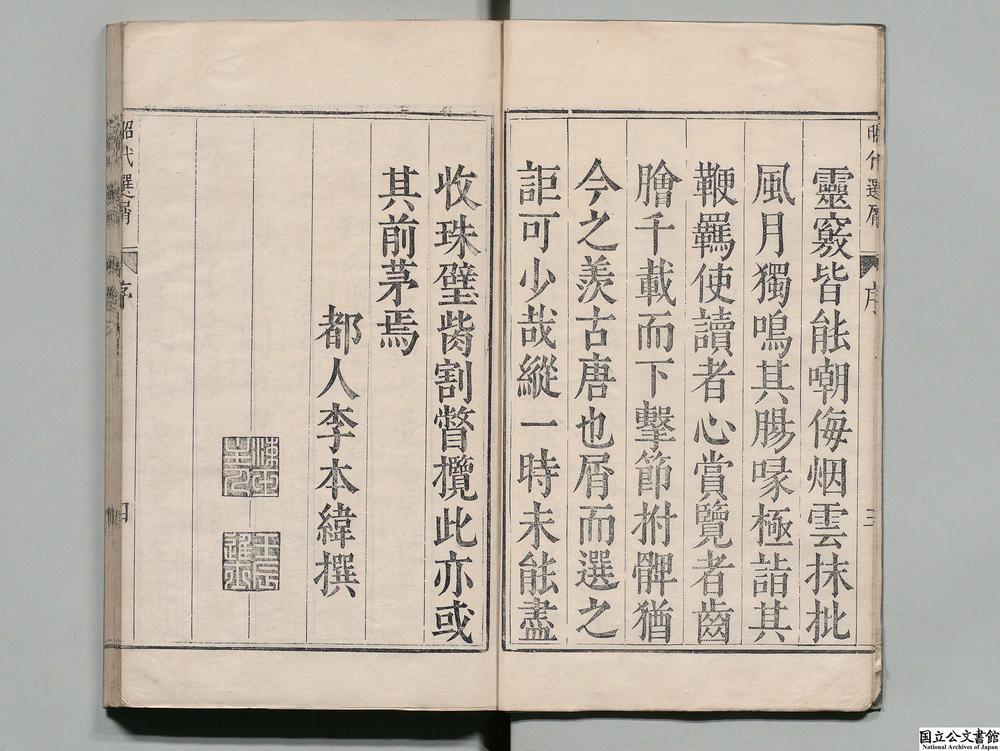 靈竅皆能嘲侮烟雲抹批
風月獨鳴其腸喙極詣其
鞭羈使讀者心賞覽者齒
膾千載而下擊節拊髀猶
今之羨古唐也屑而選之
詎可少哉縱一時未能盡
收珠璧胾割督攬此亦或
其前茅焉
都人李本緯撰
昭代選屑
序
三
昭代選屑
序
四
国立公文書館
National Archives of Japan